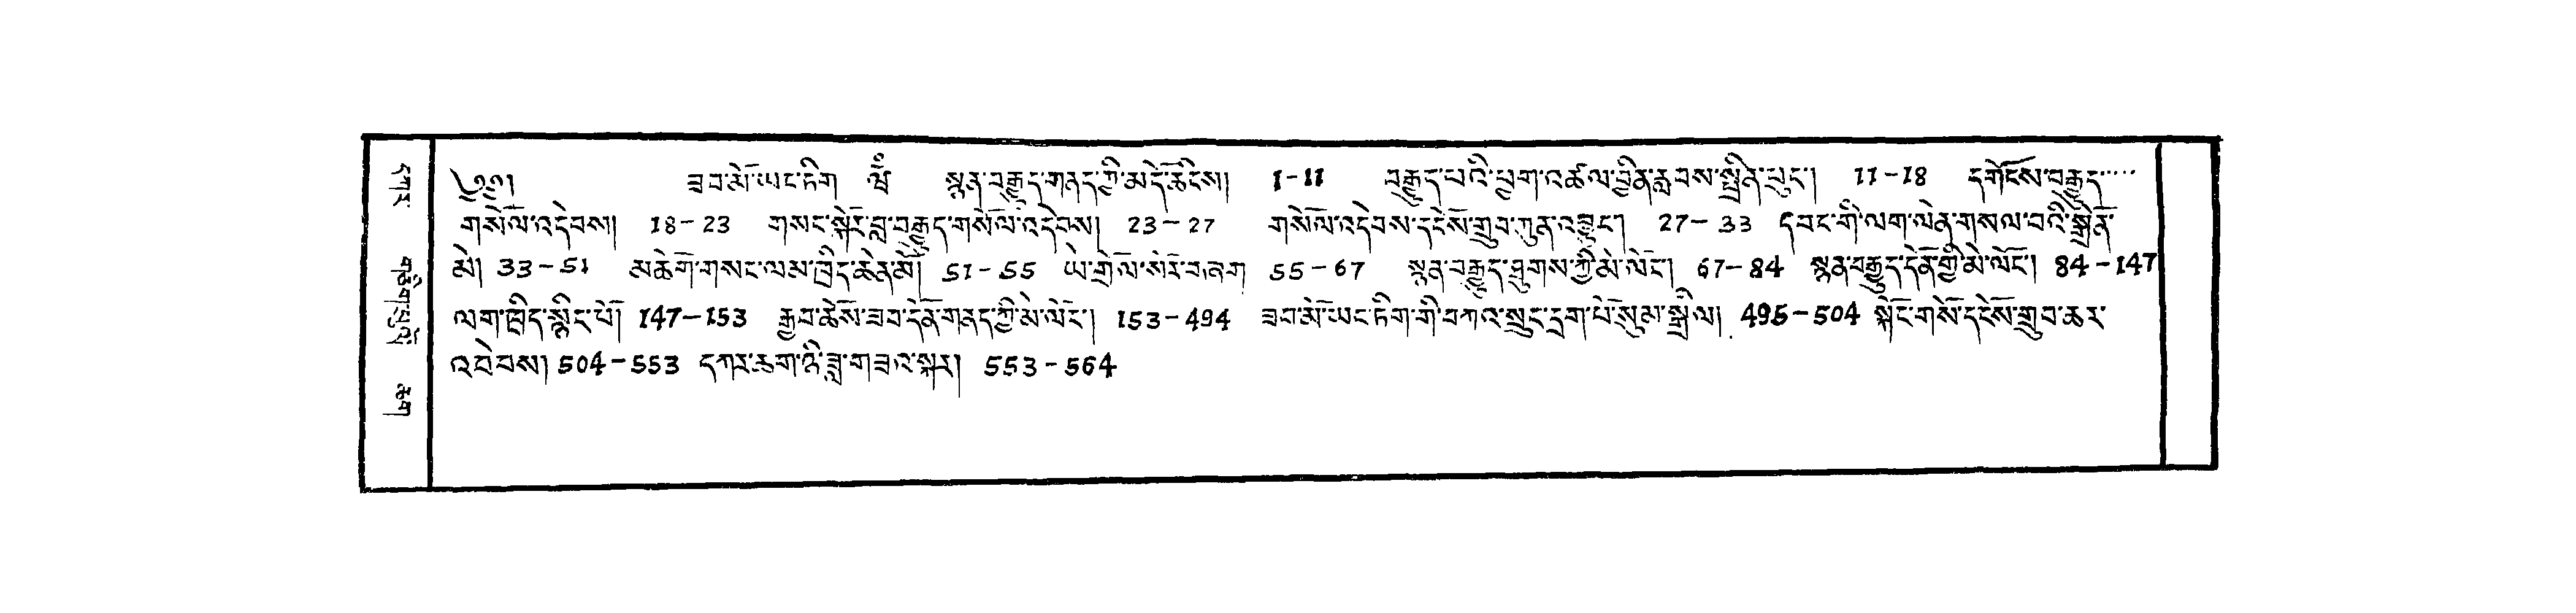 དཀར
གཅིག་པུའོ
ཆག
༄༅། ཟབ་མོ་ཡང་ཏིག ༀ སྙན་བརྒྱུད་གནད་ཀྱི་མདོ་ཆིངས། 1-11 བརྒྱུད་པའི་ཕྱག་འཚལ་བྱིན་རླབས་སྤྲིན་ཕུང་། 11-18 དགོངས་བརྒྱུད་....
གསོལ་འདེབས། 18-23 གསང་སྐོར་བླ་བརྒྱུད་གསོལ་འདེབས། 23-27 གསོལ་འདེབས་དངོས་གྲུབ་ཀུན་འབྱུང་། 27-33 དབང་གི་ལག་ལེན་གསལ་བའི་སྒྲོན་
མེ། 33-51 མཆོག་གསང་ལམ་ཁྲིད་ཆེན་མོ། 51-55 ཡེ་གྲོལ་སོར་བཞག 55-67 སྙན་བརྒྱུད་ཐུགས་ཀྱི་མེ་ལོང་། 67-84 སྙན་བརྒྱུད་དོན་གྱི་མེ་ལོང་། 84-147
ལག་ཁྲིད་སྙིང་པོ། 147-153 རྒྱབ་ཆོས་ཟབ་དོན་གནད་ཀྱི་མེ་ལོང་། 153-494 ཟབ་མོ་ཡང་ཏིག་གི་བཀའ་སྲུང་དྲག་པོ་སུམ་སྒྲིལ། 495-504 སྐོང་གསོ་དངོས་གྲུབ་ཆར་
འབེབས། 504-553 དཀར་ཆག་ཉི་ཟླ་གཟའ་སྐར། 553-564